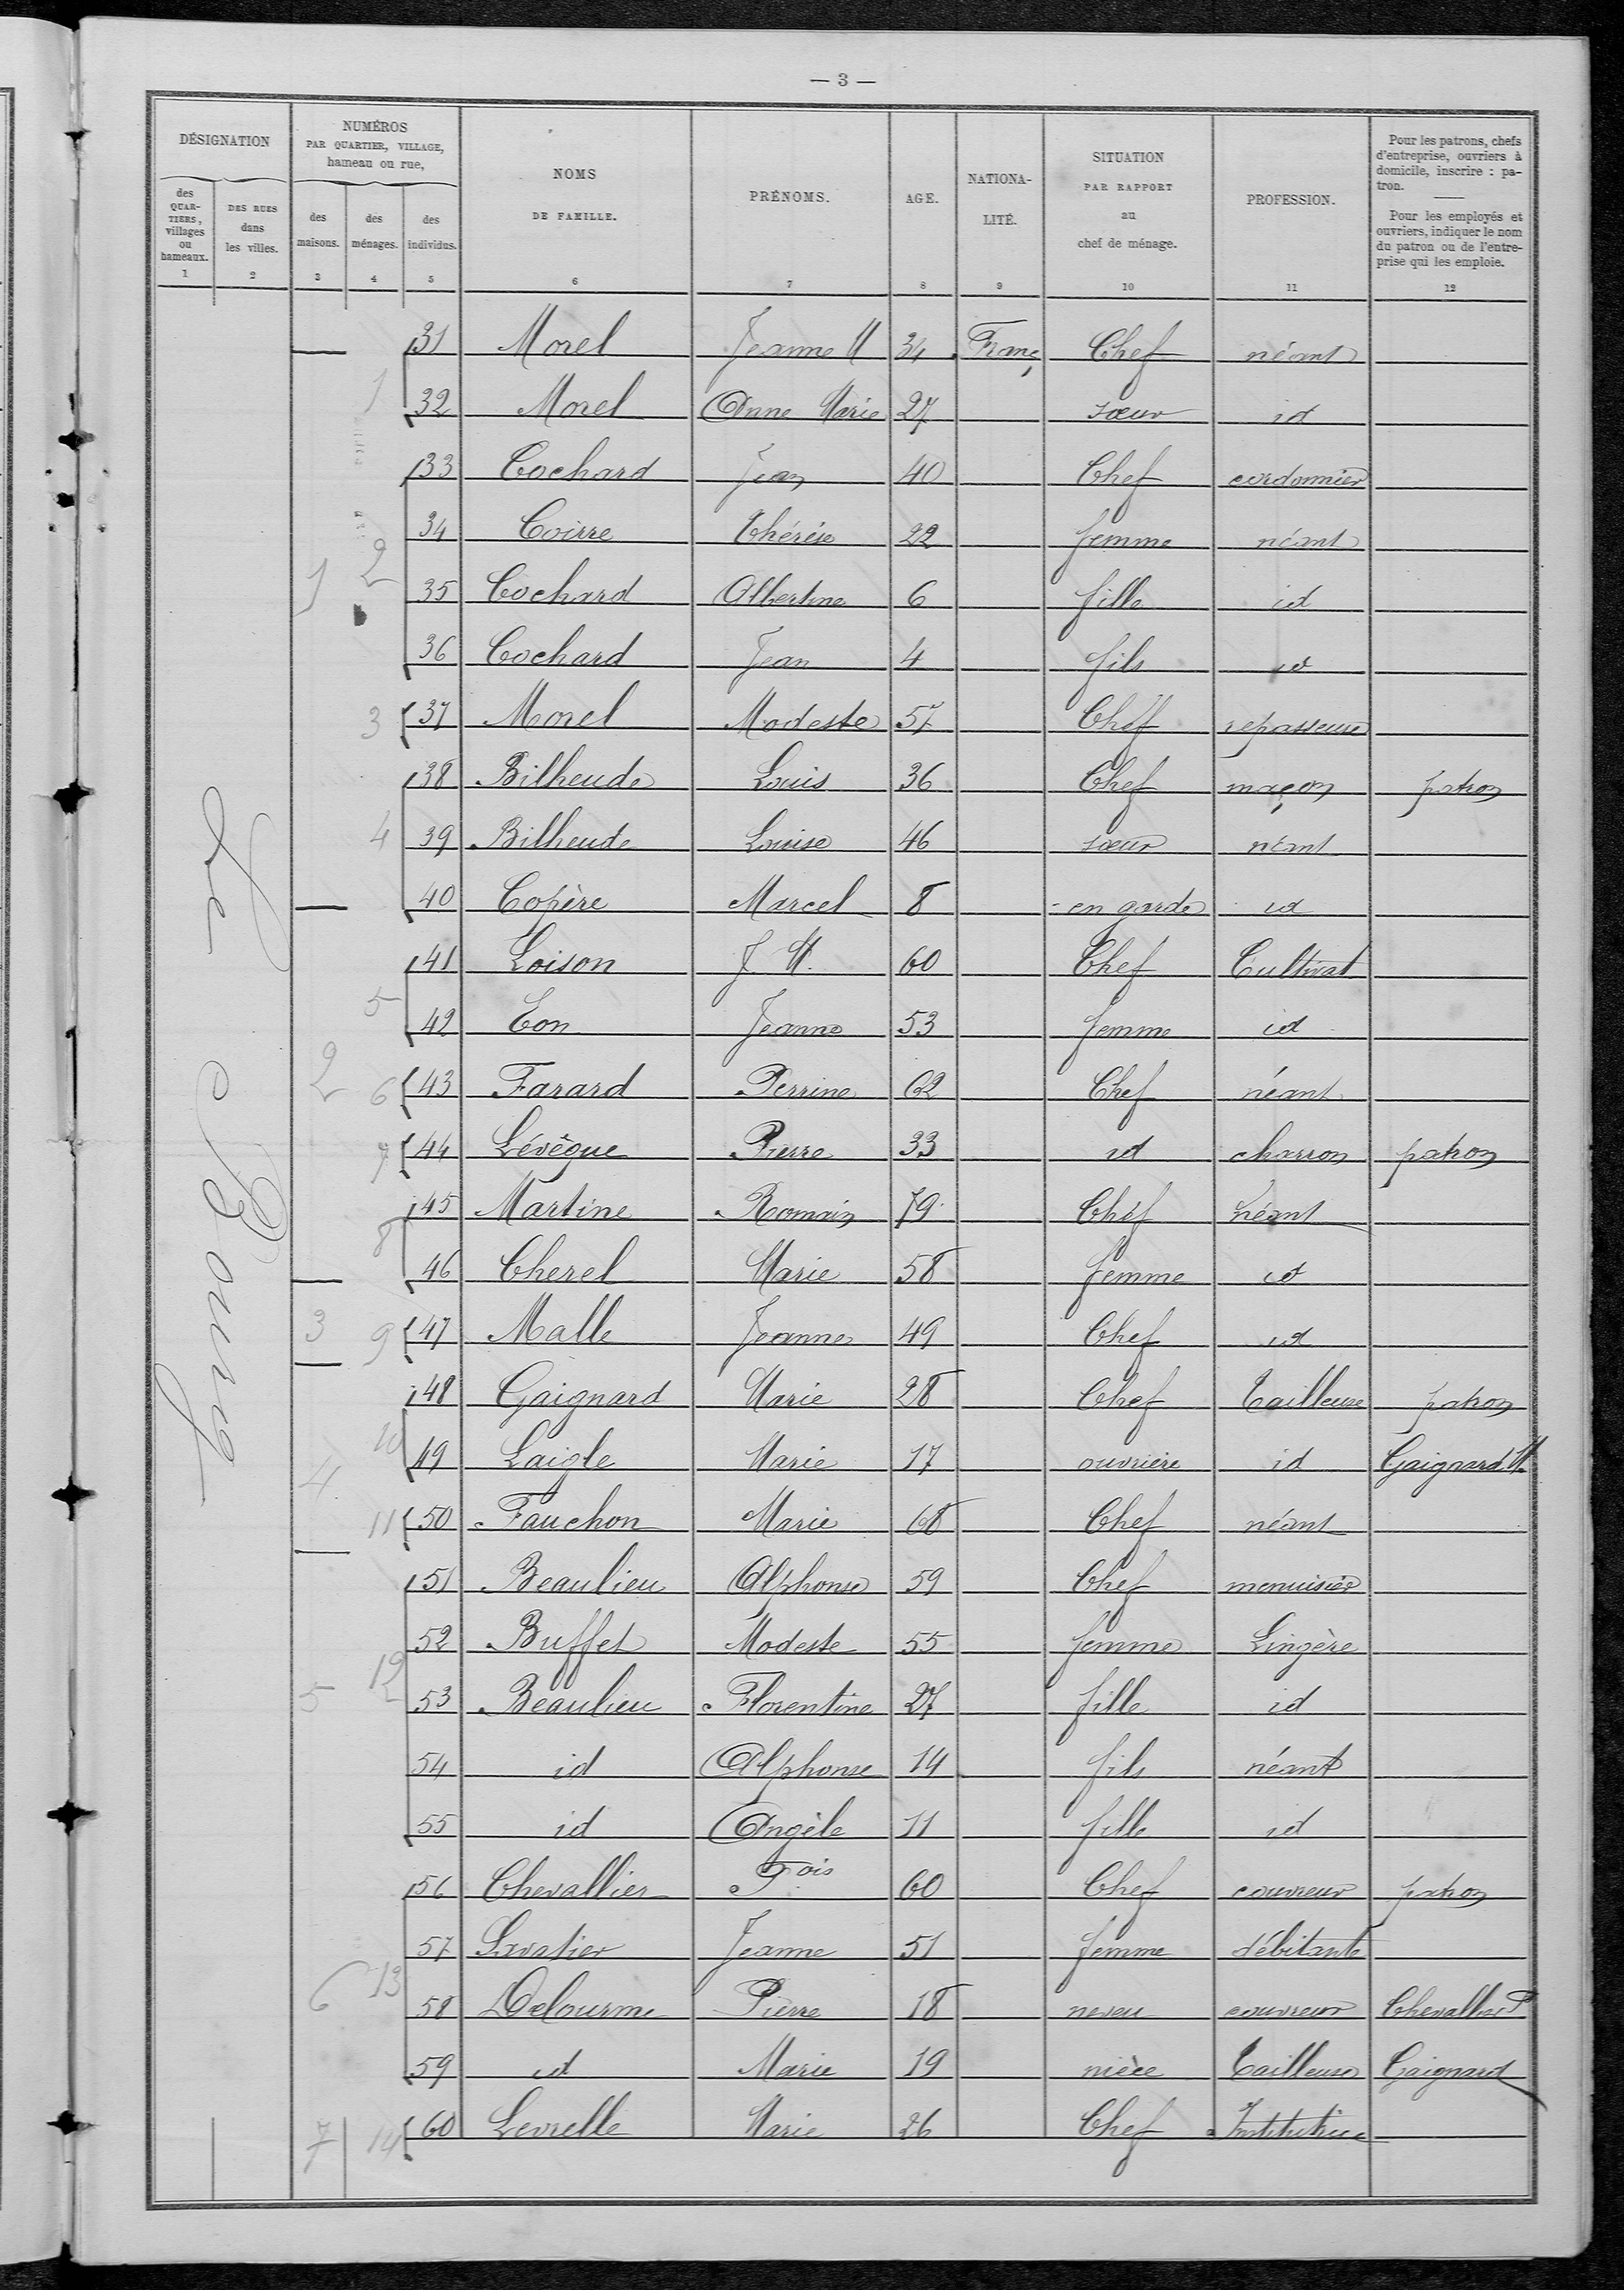 — 3 —
DÉSIGNATION
des QUARTIERS, villages ou hameaux.
1
DES RUES dans les villes.
2
NUMÉROS
PAR QUARTIER, VILLAGE,
hameau ou rue,
des maisons.
3
des ménages.
4
des individus.
5
NOMS
DE FAMILLE.
6
PRÉNOMS.
7
AGE.
8
NATIONA-
LITÉ.
9
SITUATION
PAR RAPPORT
au
chef de ménage.
10
PROFESSION.
11
Pour les patrons, chefs
d'entreprise, ouvriers à
domicile, inscrire : pa-
tron.
Pour les employés et
ouvriers, indiquer le nom
du patron ou de l'entre-
prise qui les emploie.
12
Le Bourg
31 Morel Jeanne M 34 Franç Chef néant
1 32 Morel Anne Marie 27 sœur id
33 Cochard Jean 40 Chef cordonnier
34 Coirre Thérèse 22 femme néant
1 2 35 Cochard Albertine 6 fille id
36 Cochard Jean 4 fils id
3 37 Morel Modeste 57 Chef repasseuse
38 Bilheude Louis 36 Chef maçon patron
4 39 Bilheude Louise 46 sœur néant
40 Copère Marcel 8 en garde id
41 Loison J. M. 60 Chef Cultivat
5 42 Eon Jeanne 53 femme id
2 6 43 Farard Perrine 62 Chef néant
7 44 Lévêque Pierre 33 id charron patron
45 Martine Romain 79 Chef néant
8 46 Cherel Marie 58 femme id
3 9 47 Malle Jeanne 49 Chef id
48 Gaignard Marie 28 Chef Tailleuse patron
4 10 49 Laigle Marie 17 ouvrière id Gaignard M.
11 50 Fauchon Marie 68 Chef néant
51 Beaulieu Alphonse 59 Chef menuisier
52 Buffet Modeste 55 femme Lingère
5 12 53 Beaulieu Florentine 27 fille id
54 id Alphonse 14 fils néant
55 id Angèle 11 fille id
56 Chevallier Fois 60 Chef couvreur patron
57 Savatier Jeanne 51 femme débitante
6 13 58 Delourme Pierre 18 neveu couvreur Chevallier
59 id Marie 19 nièce Tailleuse Gaignard
7 14 60 Levrelle Marie 26 Chef Institutrice